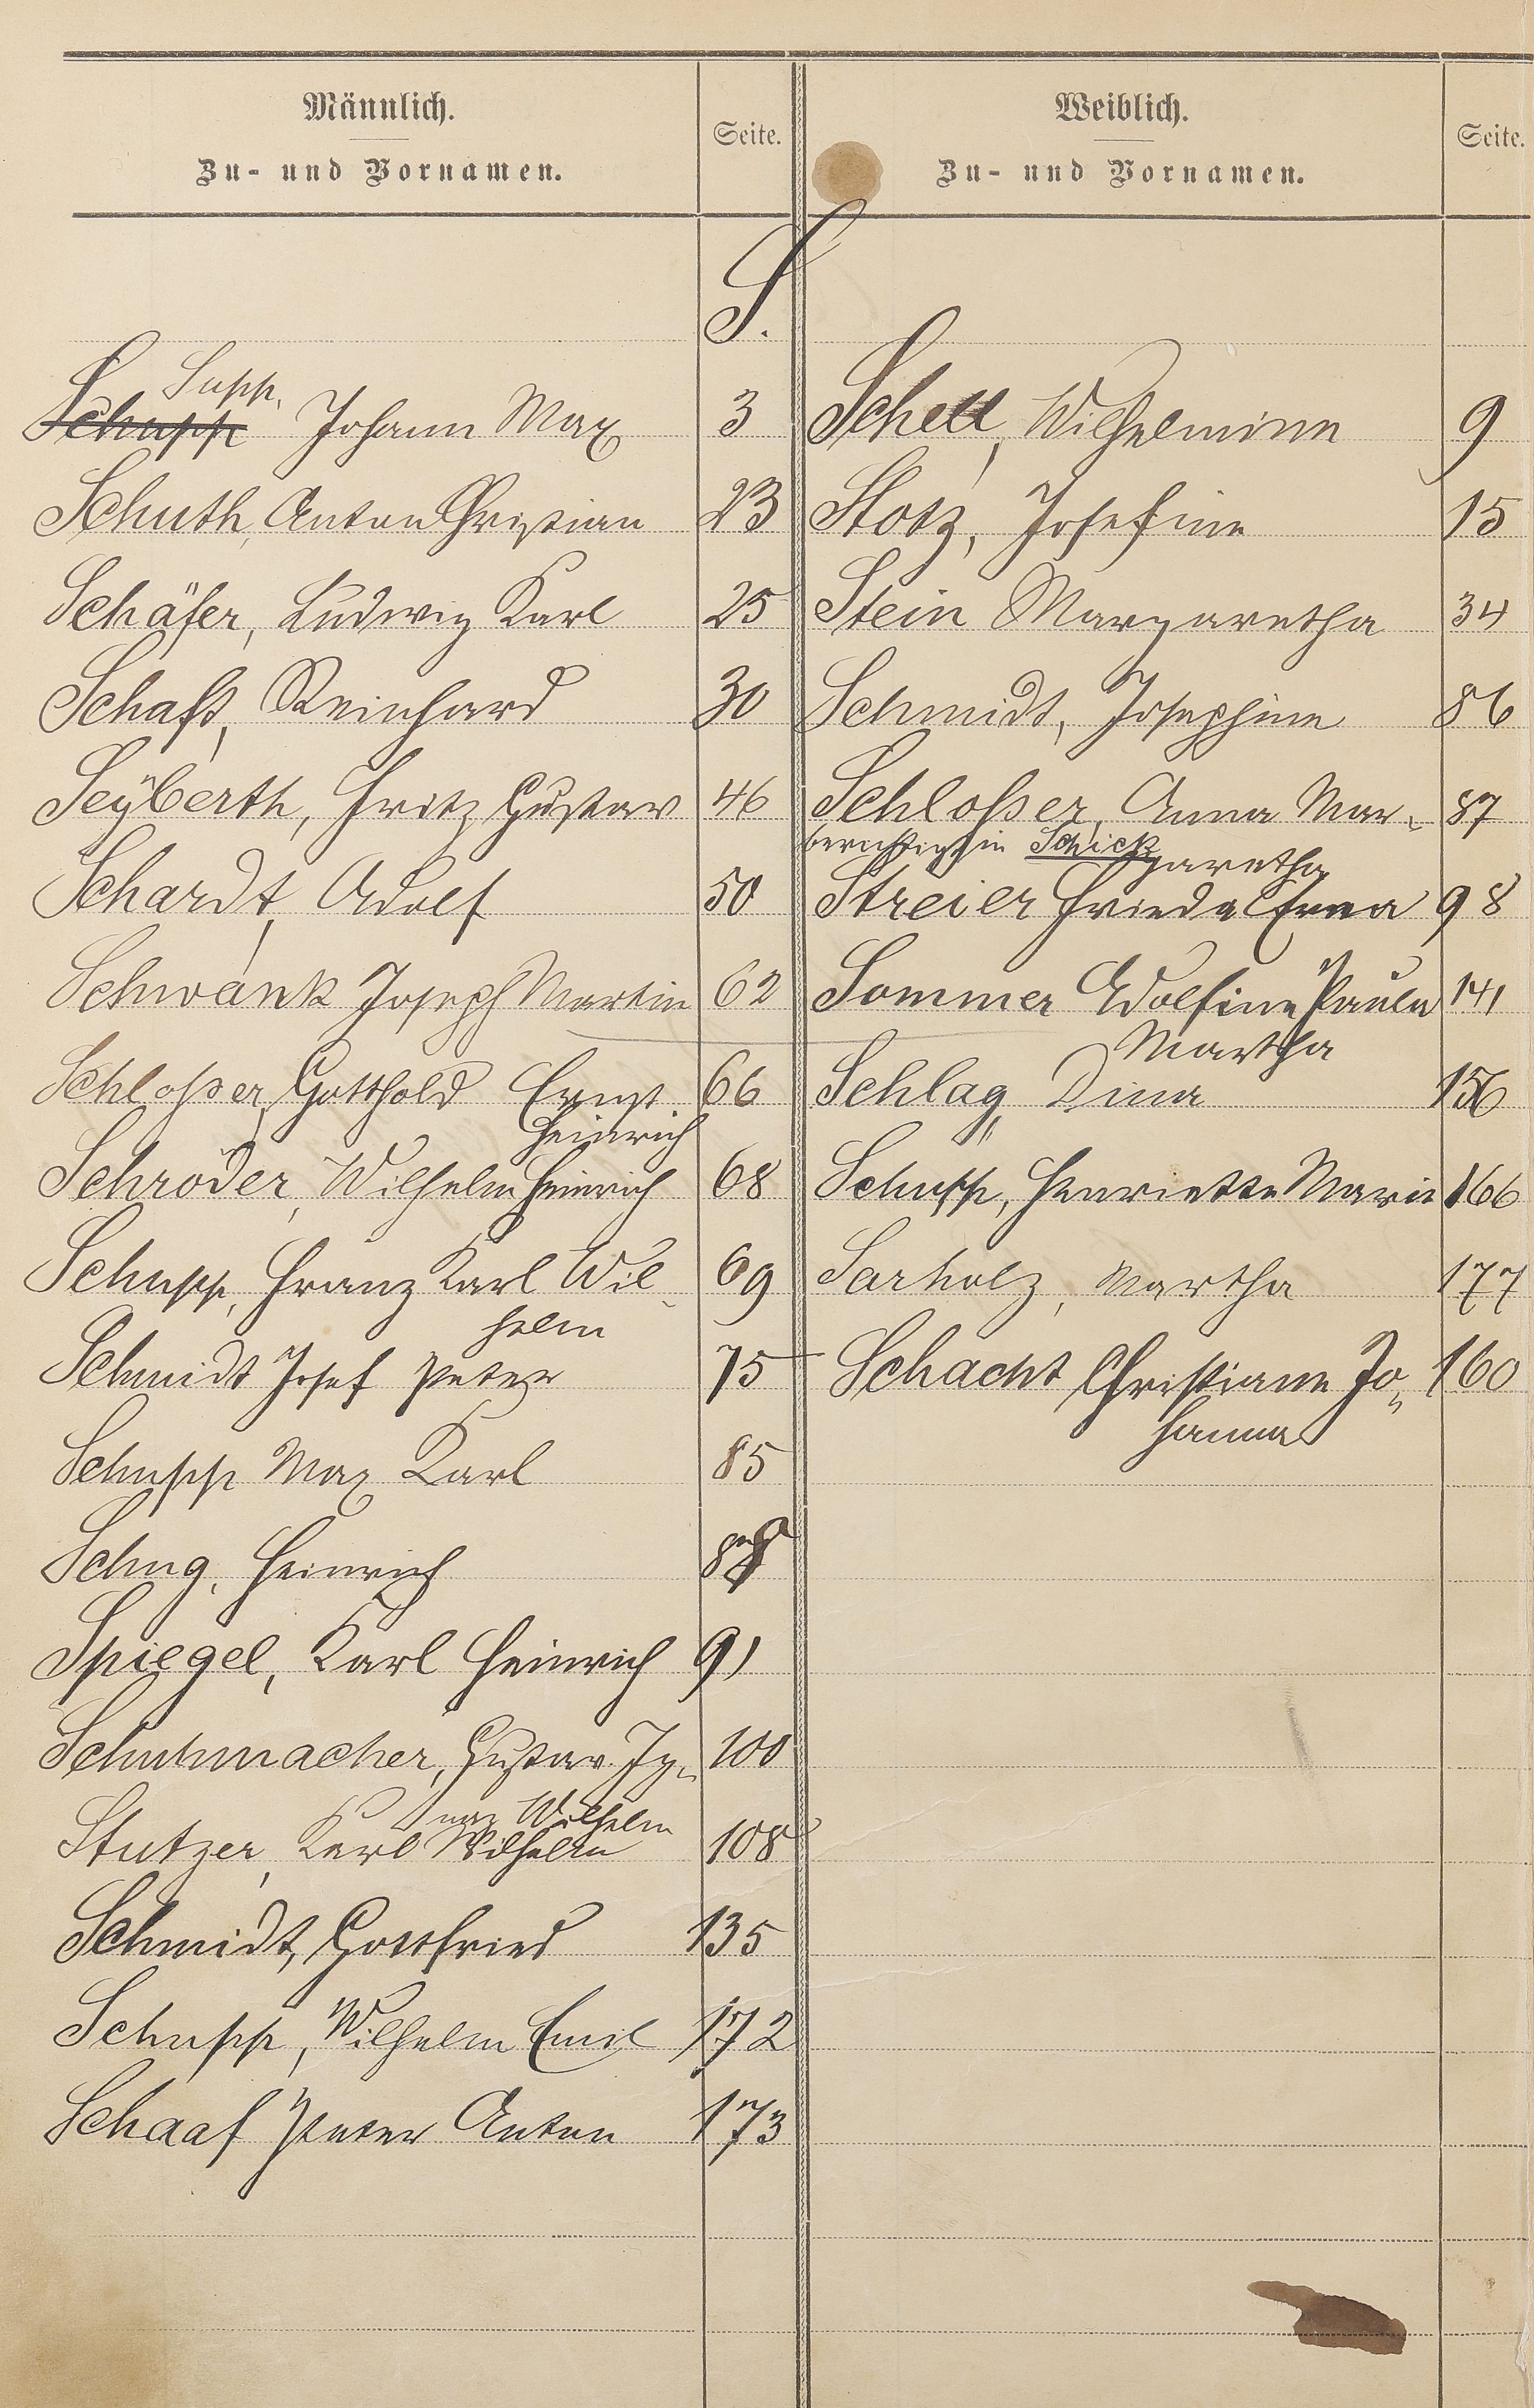 Männlich.
Zu- und Vornamen.
Seite.
Weiblich.
Zu- und Vornamen.
Seite.
S.
Supp,
Schupp Johann Max 3
Schuth, Anton Christian 23
Schäfer, Ludwig Karl 25
Schaft, Reinhard 30
Seÿberth, Fritz Gustav 46
Schardt, Adolf 50
Schwank Joseph Martin 62
Schloßer, Gotthold Ernst 66
Heinrich
Schröder, Wilhelm Heinrich 68
Schupp, Franz Karl Wil- 69
helm
Schmidt Josef Peter 75
Schupp Max Karl 85
Schug, Heinrich 88
Spiegel, Karl Heinrich 91
Schuhmacher, Gustav Ig- 100
naz Wilhelm
Stutzer, Karl Wilhelm 108
Schmidt, Gottfried 135
Schupp, Wilhelm Emil 172
Schaaf Peter Anton 173
Schell, Wilhelmine 9
Stotz, Josefine 15
Stein Margaretha 34
Schmidt, Josephine 86
Schloßer, Anna Mar- 87
berichtigt in Schick
garetha
Streier Frieda Erna 98
Sommer Adolfine Paula 141
Martha
Schlag, Dina 156
Schupp, Henriette Marie 166
Sarholz, Martha 177
Schacht Christiane Jo- 160
hanna